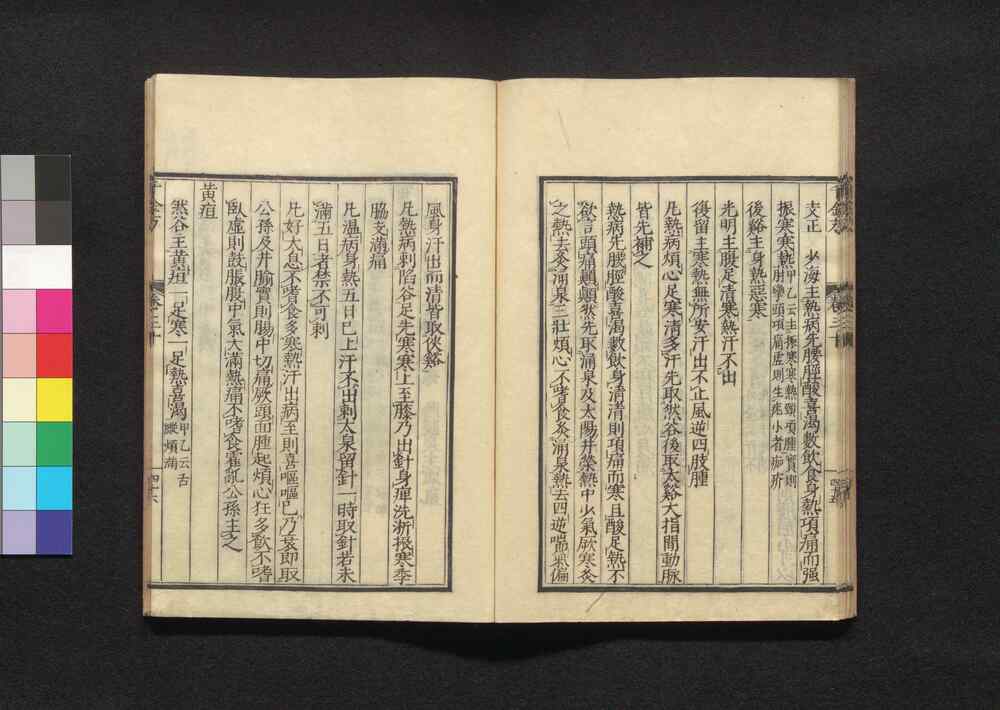 支正　少海主熱病先腰脛酸喜渴數飲食身熱項痛而强
振寒寒熱甲乙云主振寒寒熱頸項腫實則肘攣頭項痛虛則生疣小者痂疥
後谿主身熱惡寒
光明主腹足清寒熱汗不出
復留主寒熱無所安汗出不止風逆四肢腫
凡熱病煩心足寒清多汗先取然谷後取太谿大指間動脉
皆先補之
熱病先腰脛酸喜渴數飲身清清則項痛而寒且酸足熱不
欲言頭痛顛顛然先取涌泉及太陽井滎熱中少氣厥寒灸
之熱去灸涌泉三壯煩心不嗜食灸涌泉熱去四逆喘氣偏
風身汗出而清皆取俠谿
凡熱病刺陷谷足先寒寒上至膝乃出針身痺洗淅振寒季
脇支滿痛
凡溫病身熱五日已上汗不出刺太泉留針一時取針若未
滿五日者禁不可刺
凡好太息不嗜食多寒熱汗出病至則喜嘔嘔已乃衰即取
公孫及井腧實則腸中切痛厥頭面腫起煩心狂多飲不嗜
臥虛則鼓脹腹中氣大滿熱痛不嗜食霍亂公孫主之
黄疸
然谷主黄疸一足寒一足熱喜渴甲乙云舌縱煩滿
四十六